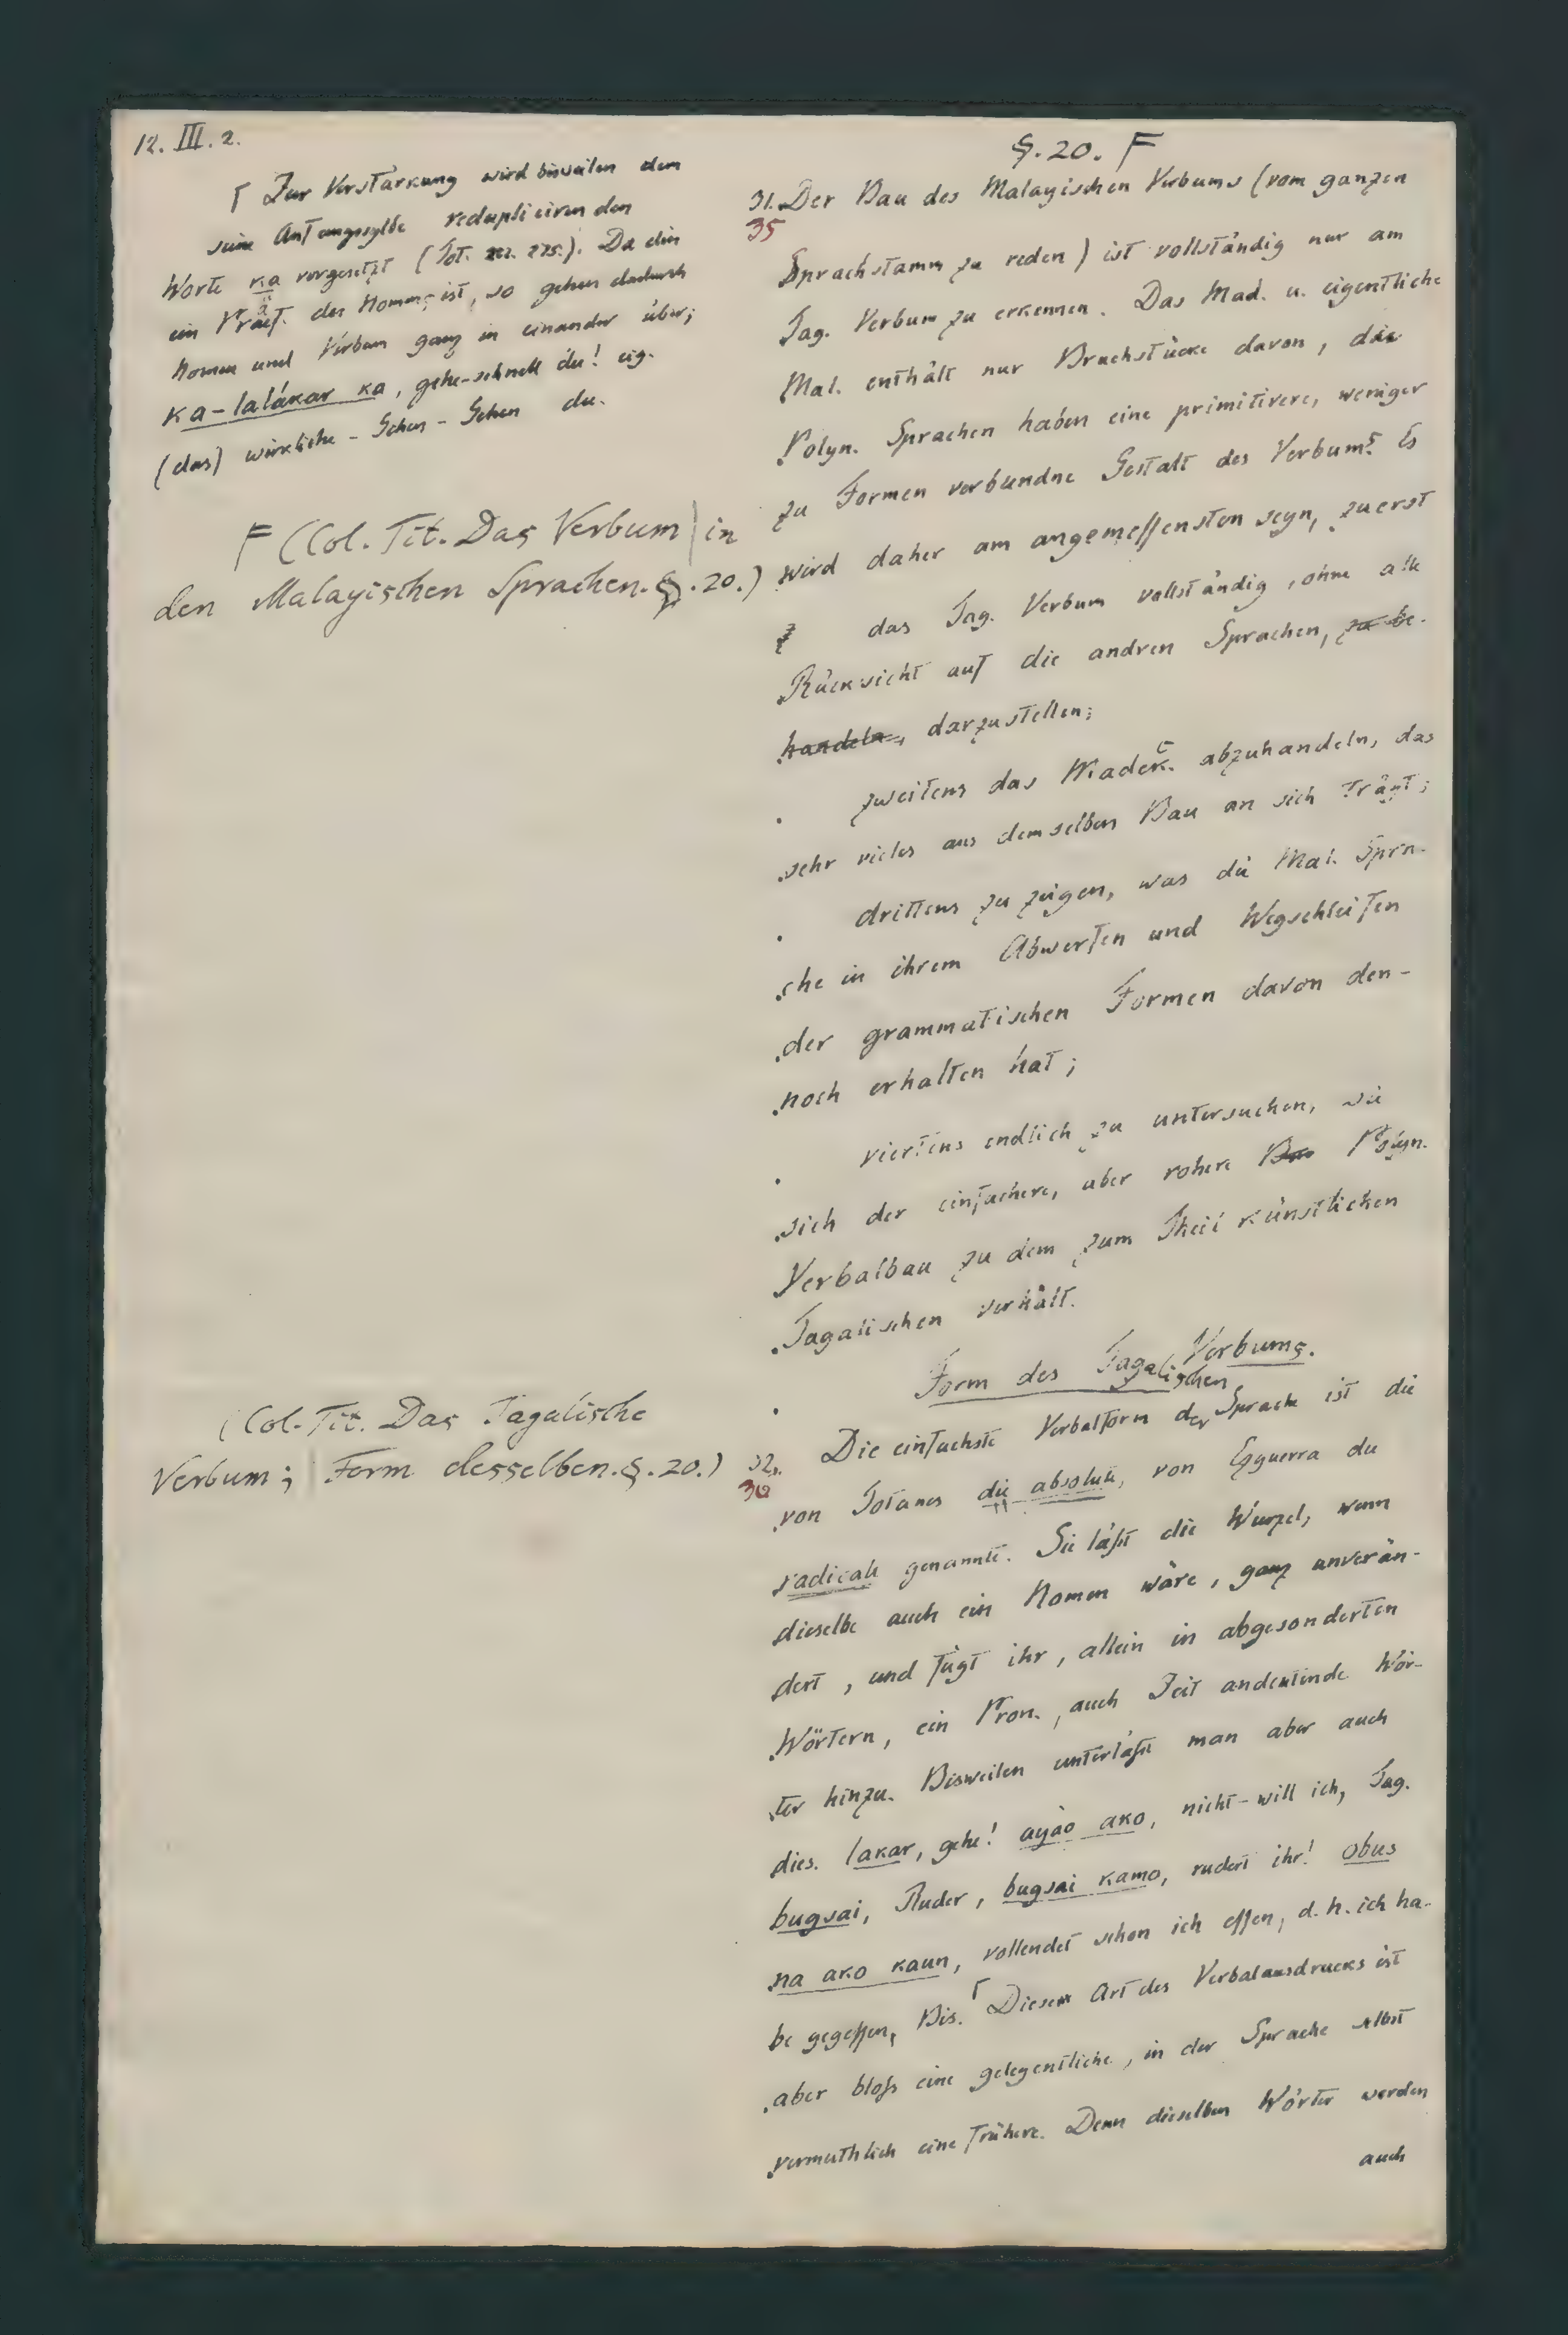 12. III. 2.
Γ Zur Verstärkung wird bisweilen dem
seine Anfangssylbe reduplicirenden
Worte ka vorgesetzt (Tot. nr. 275.). Da dies
ein Praef. der Nomina ist, so gehen dadurch
Nomen und Verbum ganz in einander über;
ka-lalákar ka, gehe-schnell du! eig.
(das) wirkliche-Gehen-Gehen du.
F (Col. Tit. Das Verbum | in
den Malayischen Sprachen. §.20.)
(Col. Tit. Das Tagalische
Verbum; | Form desselben. §.20.)
§. 20. F
31. Der Bau des Malayischen Verbums (vom ganzen
35
Sprachstamm zu reden) ist vollständig nur am
Tag. Verbum zu erkennen. Das Mad. u. eigentliche
Mal. enthält nur Bruchstücke davon, die
Polyn. Sprachen haben eine primitivere, weniger
zu Formen verbundne Gestalt des Verbums. Es
wird daher am angemessensten seyn, zuerst
das Tag. Verbum vollständig, ohne alle
Rücksicht auf die andren Sprachen, zu be-
handeln, darzustellen;
zweitens das Madec. abzuhandeln, das
sehr vieles aus demselben Bau an sich trägt;
drittens zu zeigen, was die Mal. Spra-
che in ihrem Abwerfen und Wegschleifen
der grammatischen Formen davon den-
noch erhalten hat;
viertens endlich zu untersuchen, wie
sich der einfachere, aber rohere Bau Polyn.
Verbalbau zu dem zum Theil künstlichen
Tagalischen verhält.
Form des Tagalischen Verbums.
32. Die einfachste Verbalform der Sprache ist die
36
von Totanes die absolute, von Ezguerra die
radicale genannte. Sie läßt die Wurzel, wenn
dieselbe auch ein Nomen wäre, ganz unverän-
dert, und fügt ihr, allein in abgesonderten
Wörtern, ein Pron., auch Zeit andeutende Wör-
ter hinzu. Bisweilen unterläßt man aber auch
dies. lakar, gehe! ayào ako, nicht-will ich, Tag.
bugsai, Ruder, bugsai kamo, rudert ihr! obus
na ako kaun, vollendet schon ich essen, d.h. ich ha-
be gegessen, Bis. Γ Diese Art des Verbalausdrucks ist
aber bloß eine gelegentliche, in der Sprache selbst
vermuthlich eine frühere. Denn dieselben Wörter werden
auch